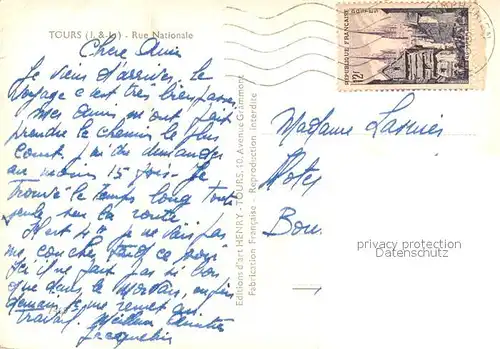 TOURS (I. & L.) - Rue Nationale
Chère Amie
Je viens d'arriver, le
voyage c'est très bien passé
Mes amis m'ont fait
prendre le chemin le plus
court j'ai du demander
au moins 15 fois - Je
trouve le temps long toute
seule sur la route
Il est 4 h je ne vais pas
me coucher tard ce soir
Ici il ne fait pas si bon
que dans le Morvan, enfin
demain je me remet au
travail. Meilleur Amitié
Jacqueline
Editions d'art HENRY - TOURS, 10, Avenue Grammont
Fabrication Française - Reproduction Interdite
REPUBLIQUE FRANÇAISE
POSTES
12F
Madame
Hotel
privacy protection
Datenschutz